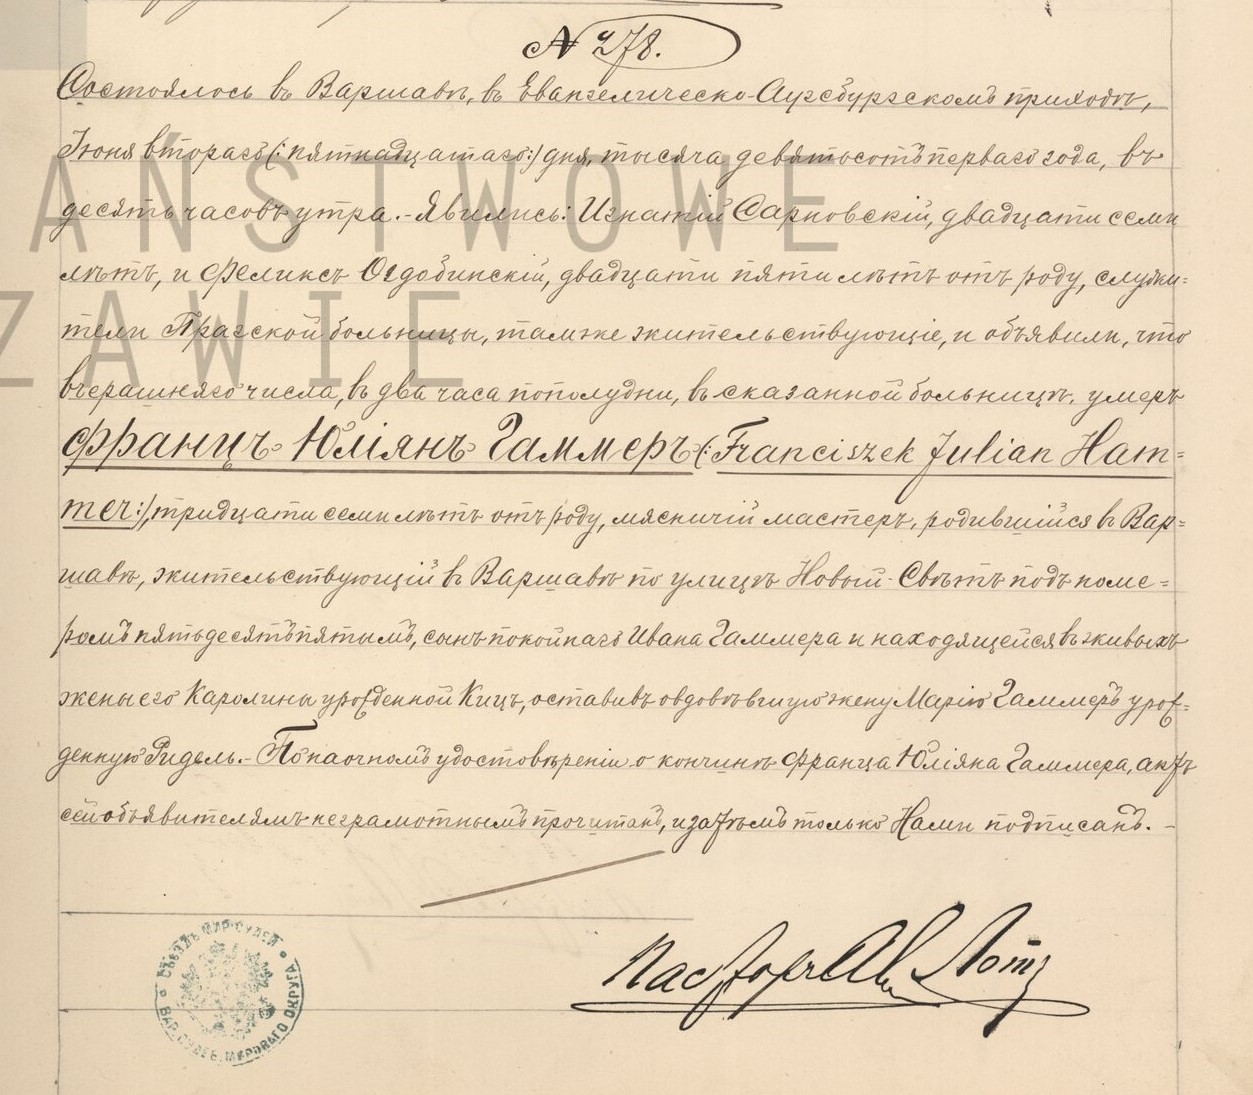 № 278.
Состоялось въ Варшавѣ, въ Евангелическо-Аугсбургскомъ приходѣ,
Іюня втораго (:пятнадцатаго:) дня, тысяча девятьсотъ перваго года, въ
десять часовъ утра. - Явились: Игнатій Сарновскій, двадцати семи
лѣтъ, и Феликсъ Огдобинскій, двадцати пяти лѣтъ отъ роду, служи=
тели Прагской больницы, тамже жительствующіе, и объявили, что
вчерашняго числа, въ два часа пополудни, въ сказанной больницѣ, умеръ
Францъ Юліянъ Гаммеръ (:Franciszek Julian Ham=
mer:), тридцати семи лѣтъ отъ роду, мясничій мастеръ, родившійся въ Вар=
шавѣ, жительствующій въ Варшавѣ по улицѣ Новый-Свѣтъ подъ номе=
ромъ пятьдесятъ пятымъ, сынъ покойнаго Ивана Гаммера и находящейся въ живыхъ
жены его Каролины урожденной Кицъ, оставивъ овдовѣвшую жену Марію Гаммеръ урож=
денную Ридель. - По наочномъ удостовѣреніи о кончинѣ Франца Юліяна Гаммера, актъ
сей объявителямъ неграмотнымъ прочитанъ, и затѣмъ только Нами подписанъ. -
Пасторъ
СЪѢЗДЪ МИР. СУДЕЙ
ВАР. СУДЕБ. МИРОВАГО ОКРУГА
AŃSTWOWE
ZAWIE